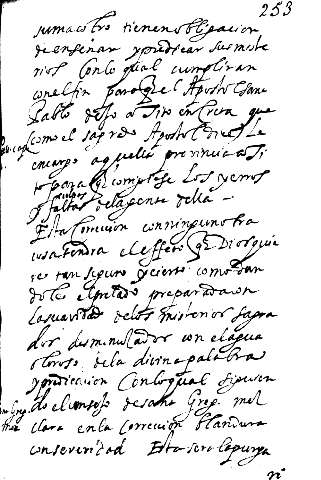 253
suma cstro tienen obligacion
de enseñar y predicar sus miste
rios con lo qual cumpliran
con el fin para que el Apostol san
Pablo dejo a Tito en Creta que
como el sagrado Apostol dice le
encargo aquella provincia a Ti
to para que compusiese los yerros
y faltas de la gente della
culpas
Esta correcion con ninguna otra
cosa tendra el effeto que Dios quie
re tan seguro y cierto como dan
dole el prelado preparada con
la suavidad de los misterios sagra
dos desmenuzados con el agua
olorosa de la divina palabra
y predicacion con lo qual siguien
do el consejo de san Greg. mez
clara en la correcion blandura
con severidad Esta sera la purga